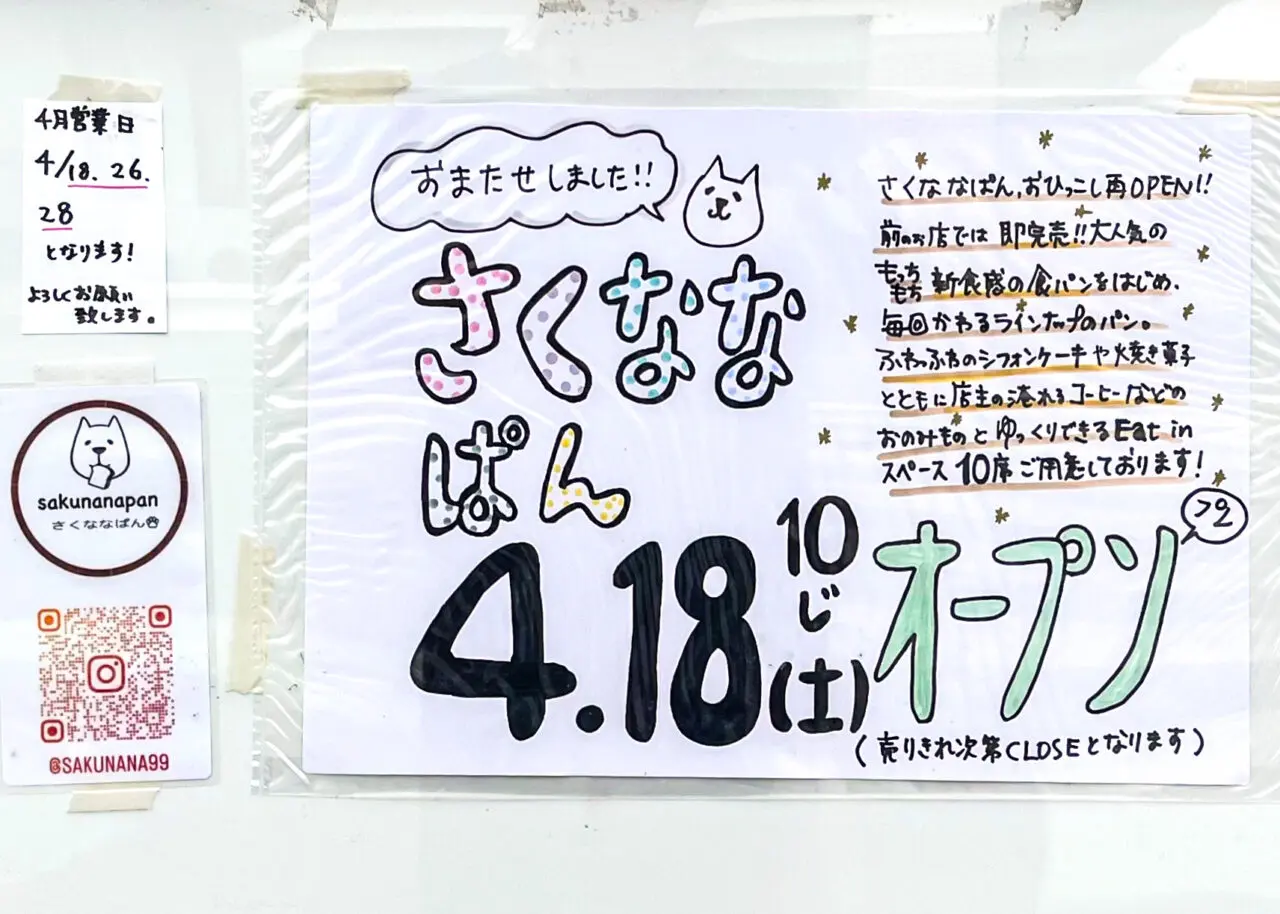 4月営業日
4/18. 26.
28
となります!
よろしくお願い
致します。
sakunanapan
さくななぱん
@SAKUNANA99
おまたせしました!!
さくなな
ぱん
4.18(土)
10じ
オープン
(売りきれ次第CLOSEとなります)
さくななぱん、おひっこし再OPEN!!
前のお店では 即完売!!大人気の
もっちもち 新食感の食パンをはじめ、
毎回かわるラインナップのパン。
ふわっふわのシフォンケーキや焼き菓子
とともに店主の淹れるコーヒーなどの
おのみものとゆっくりできるEat in
スペース 10席ご用意しております!